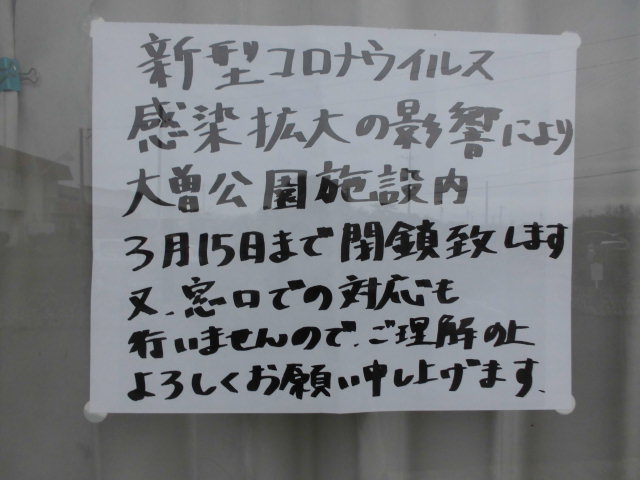 新型コロナウイルス
感染拡大の影響により
大曽公園施設内
3月15日まで閉鎖致します
又、窓口での対応も
行いませんので、ご理解の上
よろしくお願い申し上げます、